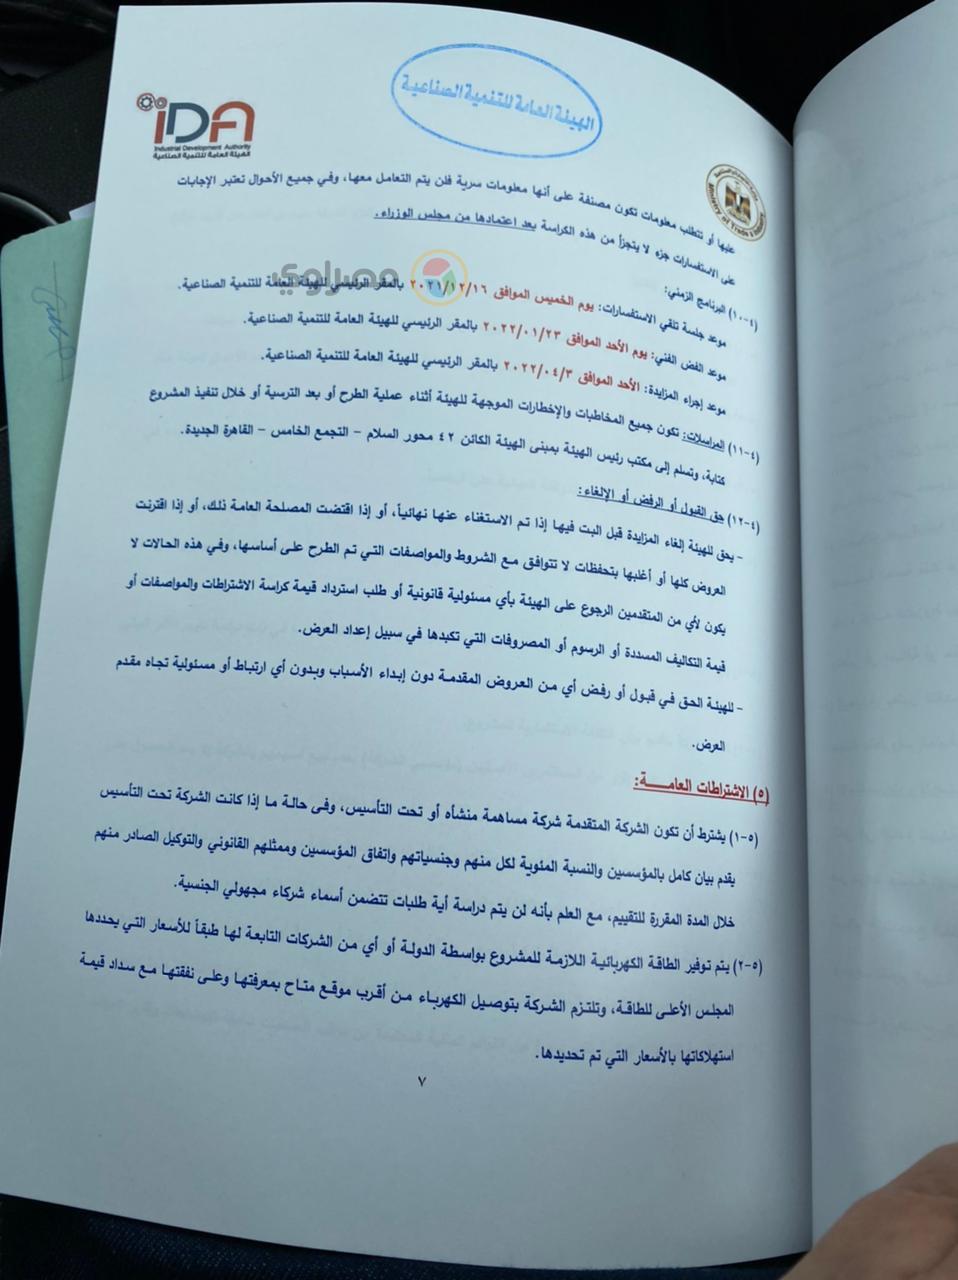 الهيئة العامة للتنمية الصناعية
iDA
Industrial Development Authority
الهيئة العامة للتنمية الصناعية
مصراوي
عليها أو تتطلب معلومات تكون مصنفة على أنها معلومات سرية فلن يتم التعامل معها، وفي جميع الأحوال تعتبر الإجابات
على الاستفسارات جزء لا يتجزأ من هذه الكراسة بعد اعتمادها من مجلس الوزراء.
(٤-١٠) البرنامج الزمني:
موعد جلسة تلقي الاستفسارات: يوم الخميس الموافق ٢٠٢١/١٢/١٦ بالمقر الرئيسي للهيئة العامة للتنمية الصناعية.
موعد الفض الفني: يوم الأحد الموافق ٢٠٢٢/٠١/٢٣ بالمقر الرئيسي للهيئة العامة للتنمية الصناعية.
موعد إجراء المزايدة: الأحد الموافق ٢٠٢٢/٠٤/٣ بالمقر الرئيسي للهيئة العامة للتنمية الصناعية.
(٤-١١) المراسلات: تكون جميع المخاطبات والإخطارات الموجهة للهيئة أثناء عملية الطرح أو بعد الترسية أو خلال تنفيذ المشروع
كتابة، وتسلم إلى مكتب رئيس الهيئة بمبنى الهيئة الكائن ٤٢ محور السلام – التجمع الخامس – القاهرة الجديدة.
(٤-١٢) حق القبول أو الرفض أو الإلغاء:
- يحق للهيئة إلغاء المزايدة قبل البت فيها إذا تم الاستغناء عنها نهائياً، أو إذا اقتضت المصلحة العامة ذلك، أو إذا اقترنت
العروض كلها أو أغلبها بتحفظات لا تتوافق مع الشروط والمواصفات التي تم الطرح على أساسها، وفي هذه الحالات لا
يكون لأي من المتقدمين الرجوع على الهيئة بأي مسئولية قانونية أو طلب استرداد قيمة كراسة الاشتراطات والمواصفات أو
قيمة التكاليف المسددة أو الرسوم أو المصروفات التي تكبدها في سبيل إعداد العرض.
- للهيئة الحق في قبول أو رفض أي من العروض المقدمة دون إبداء الأسباب وبدون أي ارتباط أو مسئولية تجاه مقدم
العرض.
(٥) الاشتراطات العامـــة:
(٥-١) يشترط أن تكون الشركة المتقدمة شركة مساهمة منشأه أو تحت التأسيس، وفى حالة ما إذا كانت الشركة تحت التأسيس
يقدم بيان كامل بالمؤسسين والنسبة المئوية لكل منهم وجنسياتهم واتفاق المؤسسين وممثلهم القانوني والتوكيل الصادر منهم
خلال المدة المقررة للتقييم، مع العلم بأنه لن يتم دراسة أية طلبات تتضمن أسماء شركاء مجهولي الجنسية.
(٥-٢) يتم توفير الطاقة الكهربائية اللازمة للمشروع بواسطة الدولة أو أي من الشركات التابعة لها طبقاً للأسعار التي يحددها
المجلس الأعلى للطاقة، وتلتزم الشركة بتوصيل الكهرباء من أقرب موقع متاح بمعرفتها وعلى نفقتها مع سداد قيمة
استهلاكاتها بالأسعار التي تم تحديدها.
٧